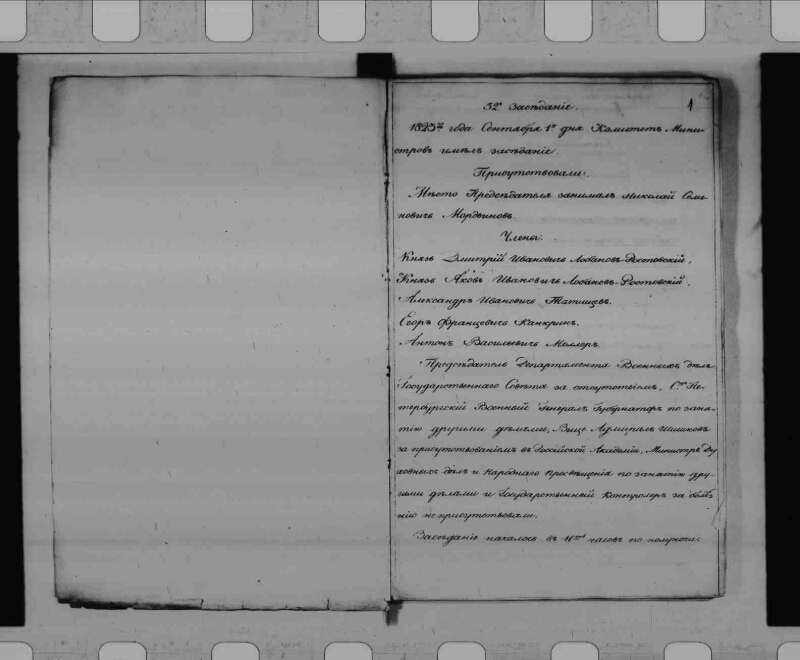 1
52е Засѣданіе.
1823го года Сентября 1го дня Комитетъ Мини-
стровъ имѣлъ засѣданіе.
Присутствовали:
Мѣсто Предсѣдателя занималъ Николай Семе-
новичъ Мордвиновъ.
Члены:
Князь Дмитрій Ивановичъ Лобановъ-Ростовскій,
Князь Яковъ Ивановичъ Лобановъ-Ростовскій,
Александръ Ивановичъ Татищевъ.
Егоръ Францовичъ Канкринъ.
Антонъ Васильевичъ Моллеръ.
Предсѣдатель Департамента Военныхъ дѣлъ
Государственнаго Совѣта за отсутствіемъ, Ст Пе-
тербургскій Военный Генералъ Губернаторъ по заня-
тію другими дѣлами, Вице Адмиралъ Шишковъ
за присутствованіемъ въ Россійской Академіи, Министръ Ду-
ховныхъ дѣлъ и Народнаго Просвѣщенія по занятію дру-
гими дѣлами и Государственный Контролеръ за болѣз-
нію не присутствовали.
Засѣданіе началось въ 11ть часовъ по полуночи.